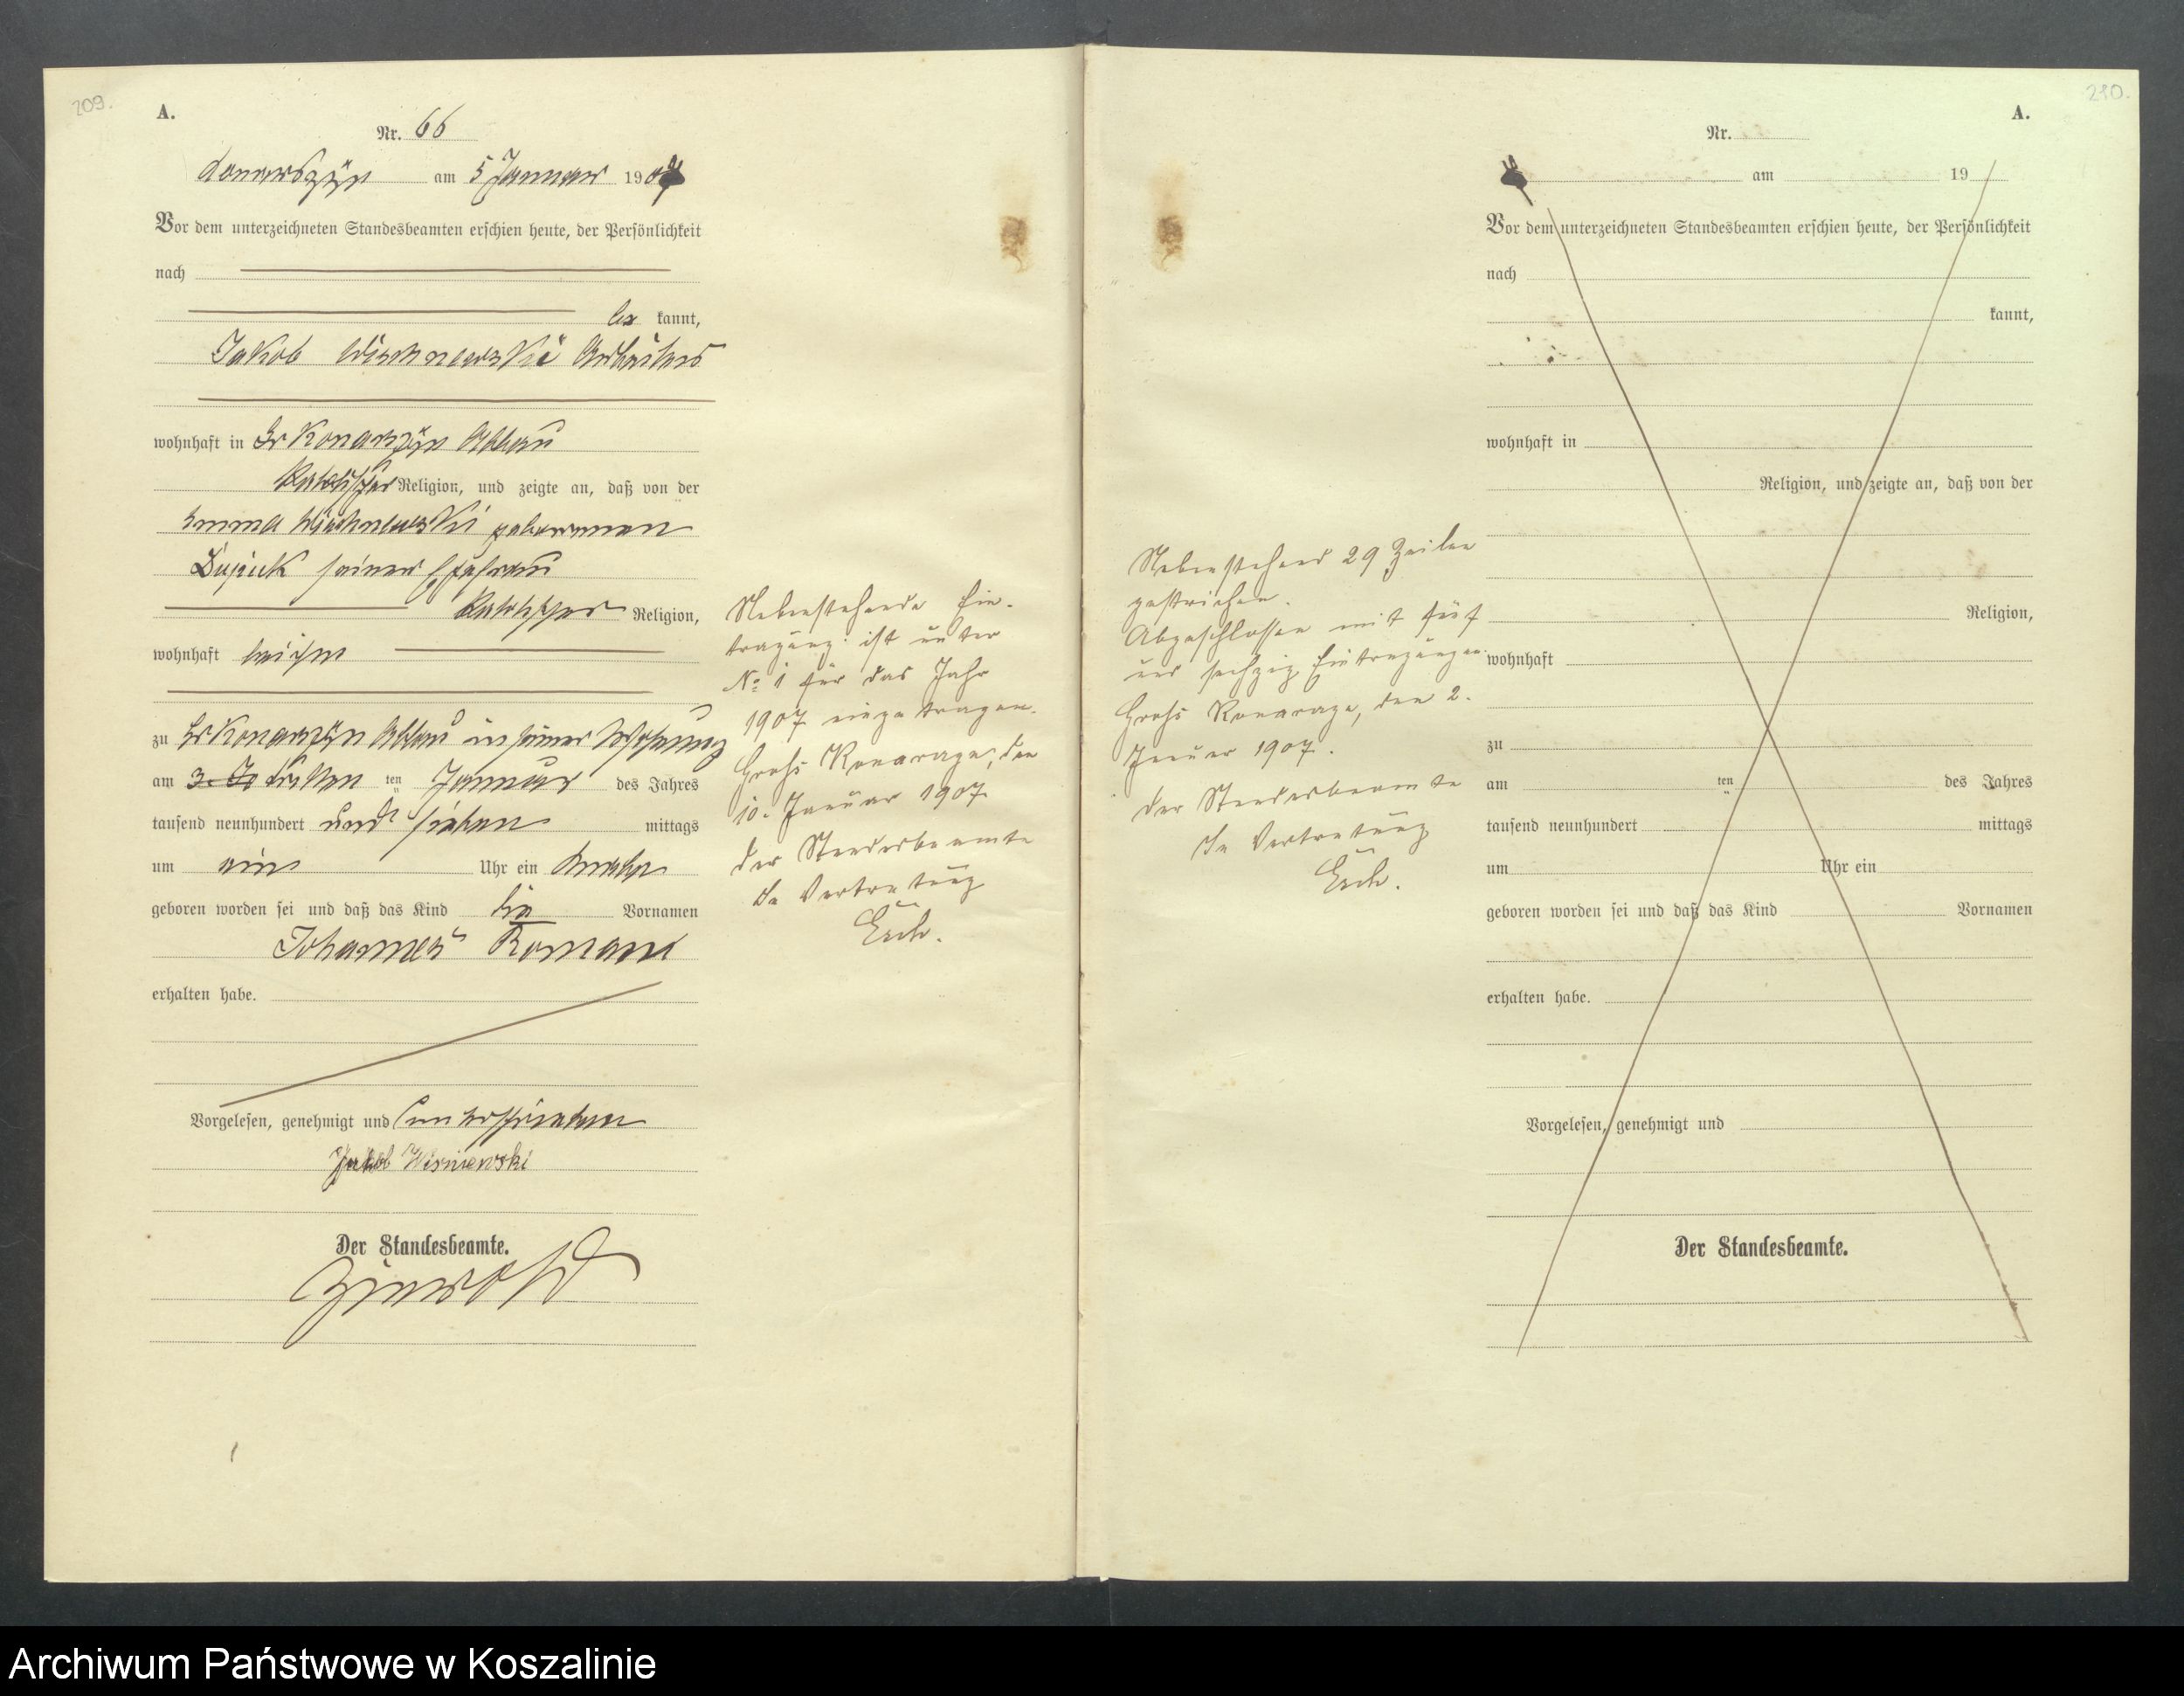 209.
A.
Nr. 66
Konarszÿn am 5 Januar 190
Vor dem unterzeichneten Standesbeamten erschien heute, der Persönlichkeit
nach
kannt,
Jakob Wischnewski Arbeiter
wohnhaft in Gr Konarzÿn Abbau
Katolischer Religion, und zeigte an, daß von der
Emma Wischnewski geborenen
seiner Ehefrau
Religion,
wohnhaft bei ihm
zu Gr Konarzÿn Abbau in seiner Wohnung
am dritten ten Januar des Jahres
tausend neunhundert und sieben mittags
um ein Uhr ein Knabe
geboren worden sei und daß das Kind die Vornamen
Johannes Roman
erhalten habe.
Vorgelesen, genehmigt und unterschrieben
Jakob Wisniewski
Der Standesbeamte.
Nebenstehende Ein-
tragung ist unter
No 1 für das Jahr
1907 eingetragen.
Groß Konarzyn, den
10. Januar 1907
Der Standesbeamte
In Vertretung
210.
A.
Nr.
am 19
Vor dem unterzeichneten Standesbeamten erschien heute, der Persönlichkeit
nach
kannt,
wohnhaft in
Religion, und zeigte an, daß von der
Religion,
wohnhaft
zu
am ten des Jahres
tausend neunhundert mittags
um Uhr ein
geboren worden sei und daß das Kind Vornamen
erhalten habe.
Vorgelesen, genehmigt und
Der Standesbeamte.
Nebenstehend 29 Zeilen
gestrichen.
Abgeschlossen mit fünf
und sechzig Eintragungen.
Groß Konarzyn, den 2.
Januar 1907.
Der Standesbeamte
In Vertretung
Archiwum Państwowe w Koszalinie